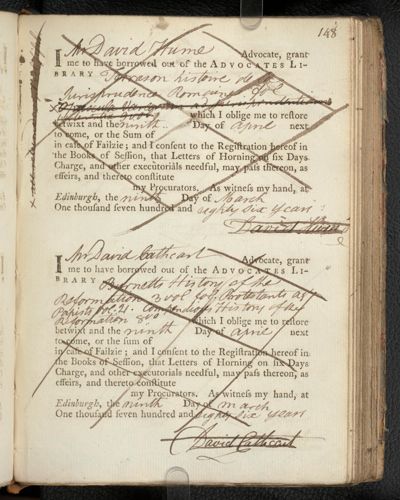 148
I Mr David Hume Advocate, grant
me to have borrowed out of the ADVOCATES LI-
BRARY Terrasson histoire de la
Jurisprudence Romaine fol
which I oblige me to restore
betwixt and the ninth Day of April next
to come, or the Sum of
in case of Failzie; and I consent to the Registration hereof in
the Books of Session, that Letters of Horning on six Days
Charge, and other executorials needful, may pass thereon, as
effeirs, and thereto constitute
my Procurators. As witness my hand, at
Edinburgh, the ninth Day of March
One thousand seven hundred and eighty Six years:
David Hume
I Mr David Cathcart Advocate, grant
me to have borrowed out of the ADVOCATES LI-
BRARY Burnetts History of the
Reformation 3 vol fol, Protestants agt
Papists vol. 21. Compendious History of the
Reformation 8vo which I oblige me to restore
betwixt and the ninth Day of April next
to come, or the sum of
in case of Failzie; and I consent to the Registration hereof in
the Books of Session, that Letters of Horning on six Days
Charge, and other executorials needful, may pass thereon, as
effeirs, and thereto constitute
my Procurators. As witness my hand, at
Edinburgh, the ninth Day of March
One thousand seven hundred and eighty Six years
David Cathcart